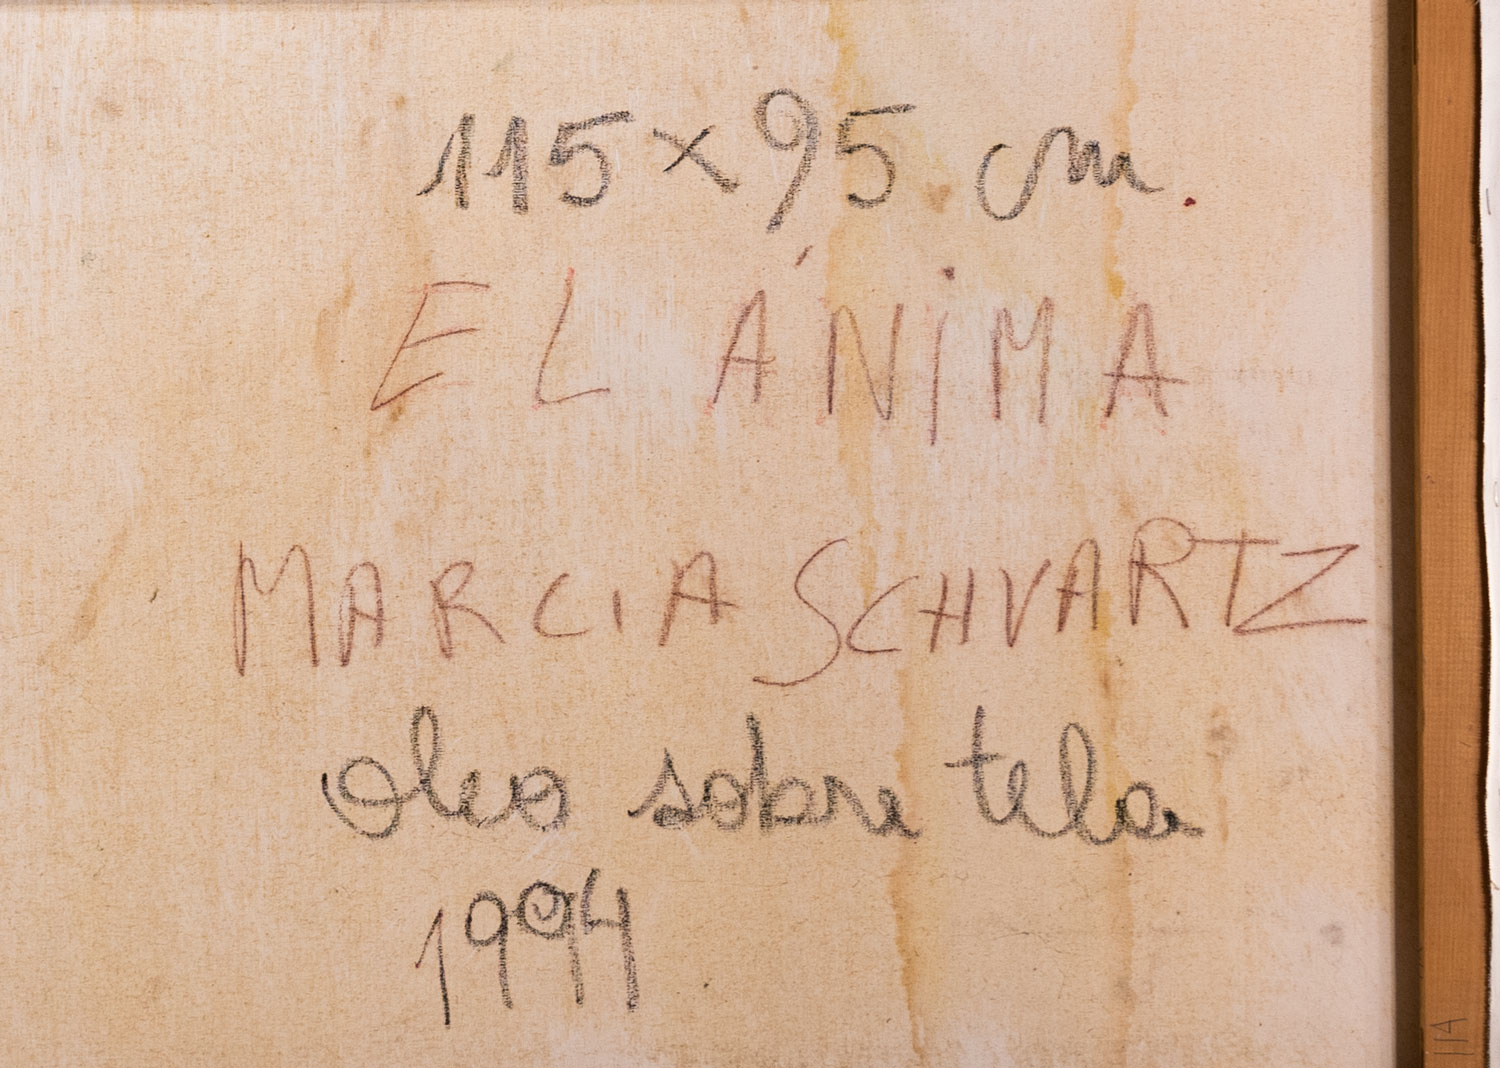 115 x 95 cm.
EL ÁNiMA
MARCIA SCHVARTZ
oleo sobre tela
1994